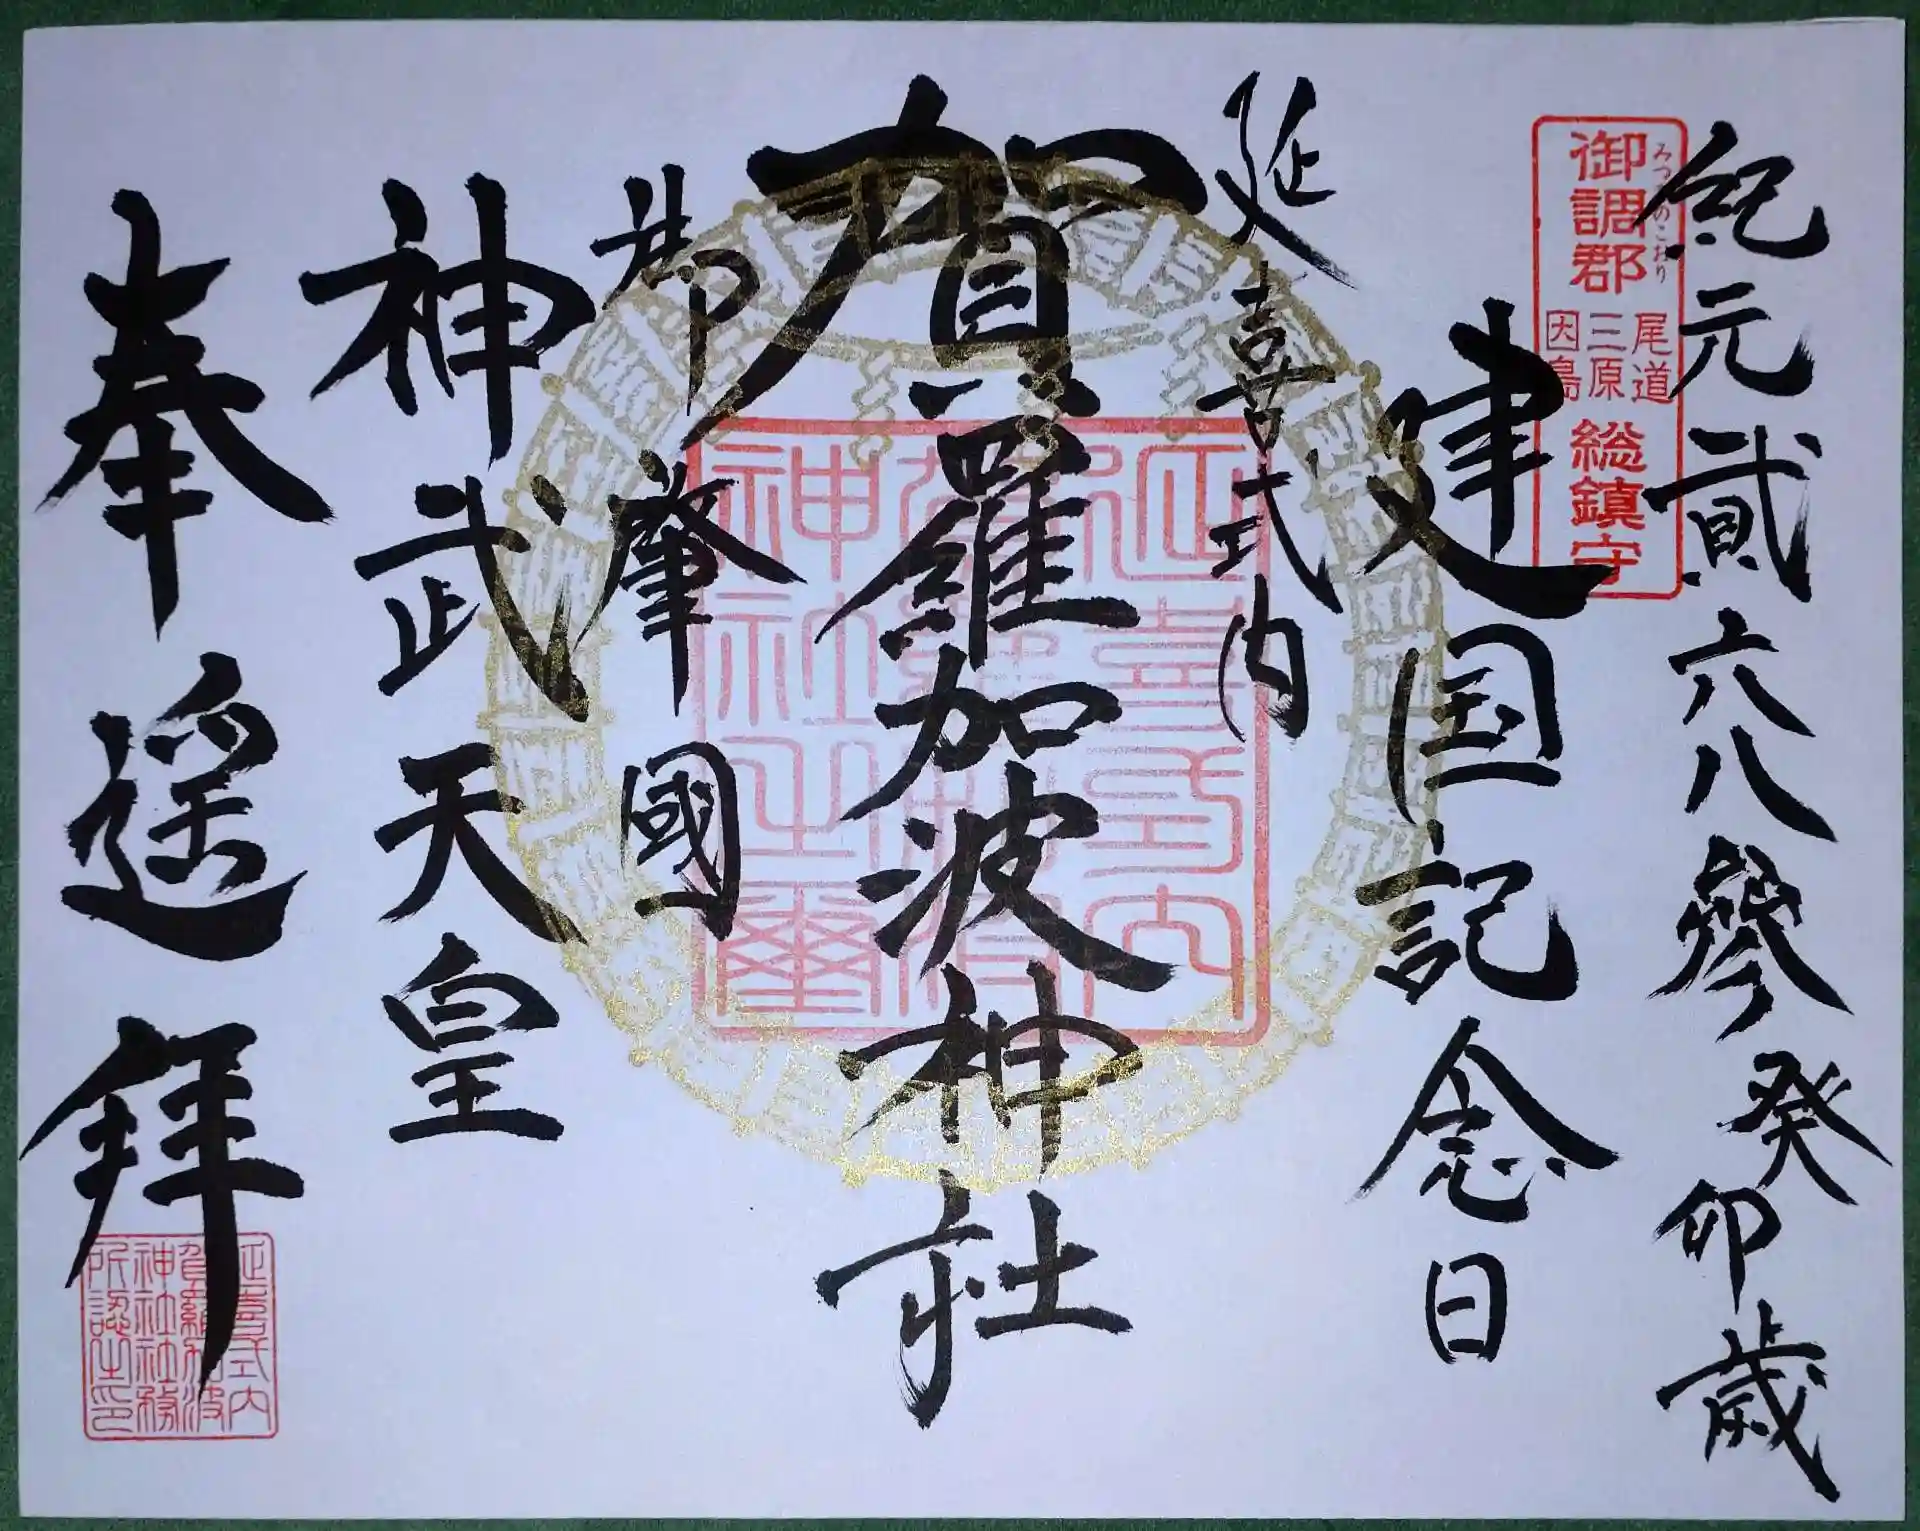 紀元貳六八參癸卯歳
御調郡
みつきのこおり
尾道
三原
因島
総鎮守
建国記念日
延喜式内
賀羅加波神社
肇國
神武天皇
奉遥拝
延喜式内
神社之璽
延喜式内
賀羅加波
神社社務
所認之印